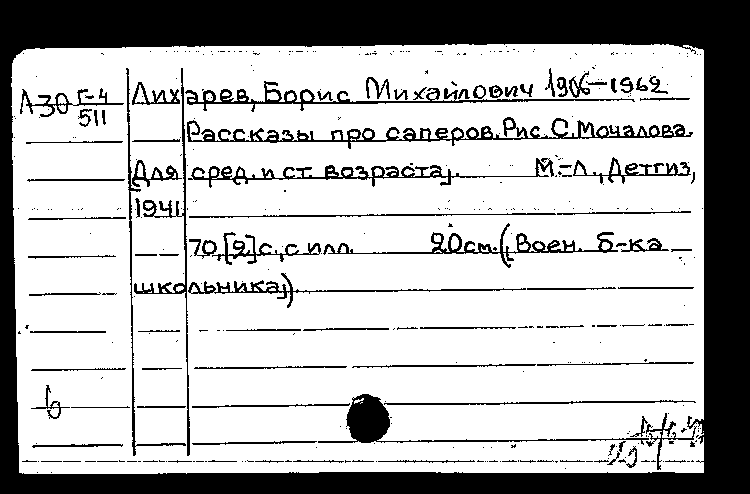 А30 Г-4/511 Лихарев, Борис Михайлович 1906-1962
Рассказы про саперов. Рис. С. Мочалова.
[Для сред. и ст. возраста]. М.-Л., Детгиз,
1941
70, [2] с., с илл. 20 см. ([Воен. б-ка
школьника]).